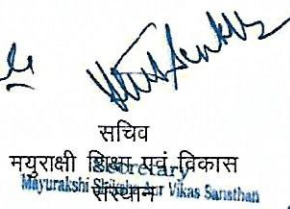 सचिव
मयुराक्षी शिक्षा एवं विकास
Secretary
Mayurakshi Shiksha Aur Vikas Sansthan
संस्थान